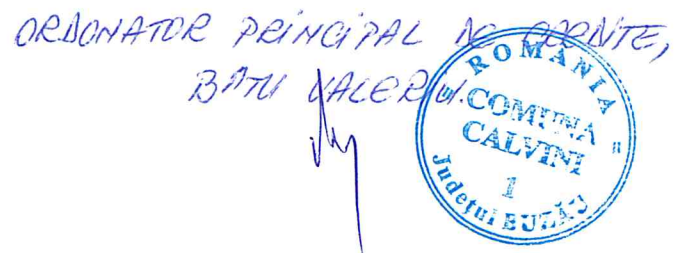 ORDONATOR PRINCIPAL DE CREDITE,
BÂTU VALERIU.
ROMÂNIA
COMUNA
CALVINI
1
Județul BUZĂU